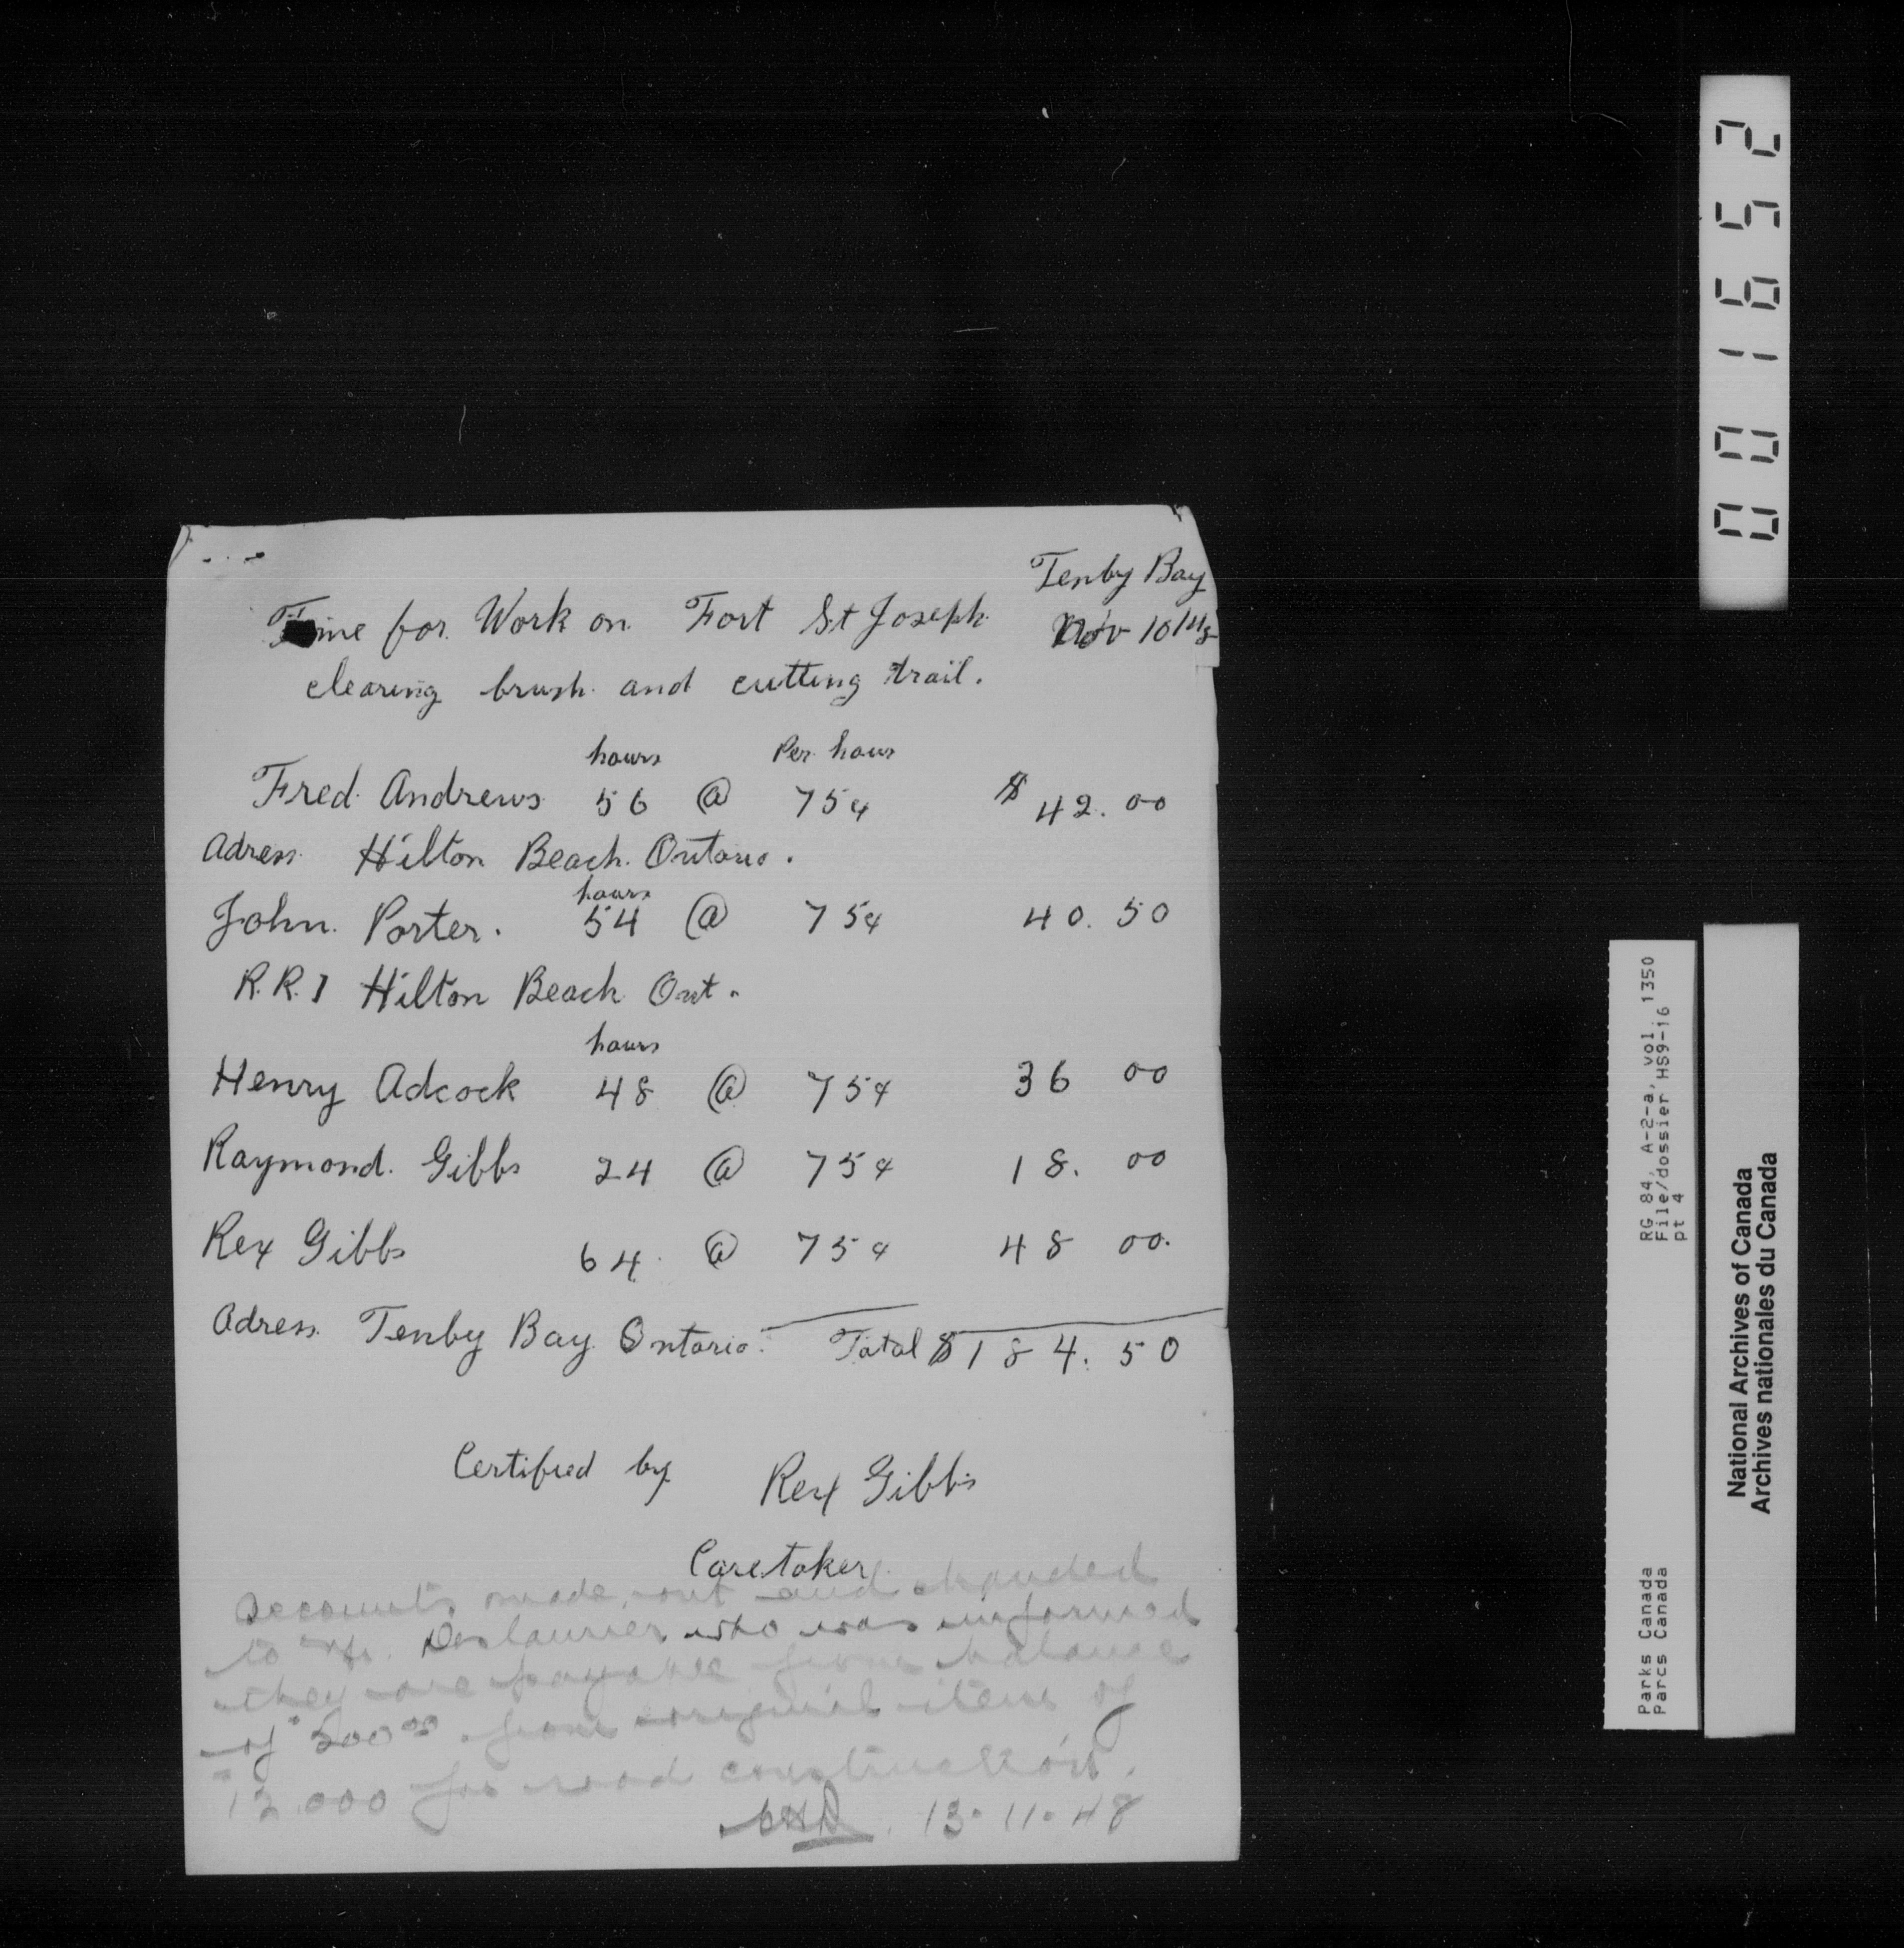 Tenby Bay
Time for Work on Fort St Joseph Nov 10 1948
clearing brush and cutting trail.
hours Per hour
Fred Andrews 56 @ 75¢ $42.00
Adress Hilton Beach Ontario.
hours
John Porter. 54 @ 75¢ 40.50
R.R. 1 Hilton Beach Ont.
hours
Henry Adcock 48 @ 75¢ 36 00
Raymond Gibbs 24 @ 75¢ 18. 00
Rex Gibbs 64 @ 75¢ 48 00.
Adress Tenby Bay Ontario. Total $184.50
Certified by Rex Gibbs
Caretaker
Accounts made out and handed
to Mr. Deslaurier who was informed
they are payable from balance
of $500.00 from original item of
$12,000 for road construction.
13-11-48
0001652
RG 84, A-2-a, vol. 1350
File/dossier HS9-16
pt 4
Parks Canada
Parcs Canada
National Archives of Canada
Archives nationales du Canada